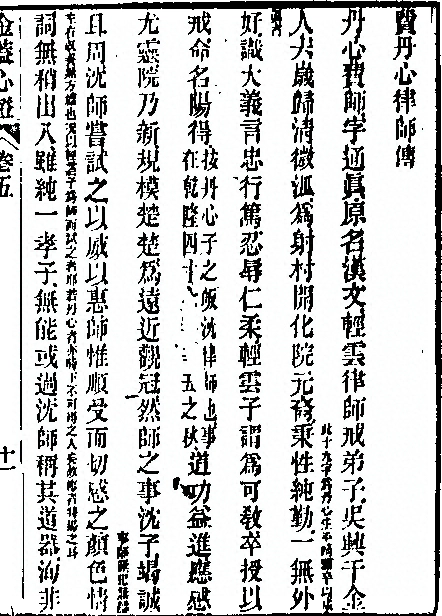 費丹心律師傳
丹心費師字通眞原名漢文輕雲律師戒弟子吳興千金
人六歲歸清微派爲射村開化院元裔秉性純勤一無外
好識大義言忠行篤忍辱仁柔輕雲子謂爲可教卒授以
戒命名陽得按丹心子之皈沈律師也事在乾隆四十五之秋道功益進應感
尤靈院乃新規模楚楚爲遠近觀冠然師之事沈子竭誠
且周沈師嘗試之以威以惠師惟順受而切感之顏色情
詞無稍出入雖純一孝子無能或過沈師稱其道器洵非
金蓋心燈 卷五 十一